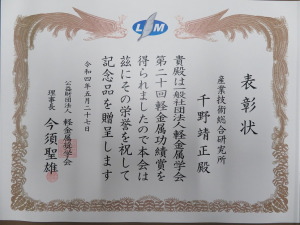 LSM
表彰状
産業技術総合研究所
千野靖正殿
貴殿は一般社団法人軽金属学会
第二十回軽金属功績賞を
得られましたので本会は
茲にその栄誉を祝して
記念品を贈呈します
令和四年五月二十七日
公益財団法人 軽金属奨学会
理事長 今須聖雄